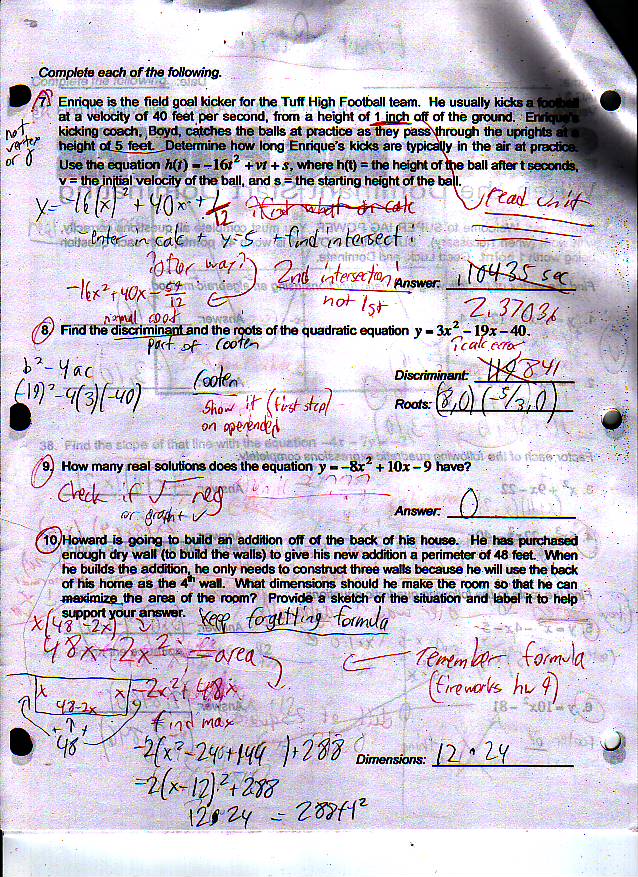 Complete each of the following.
7. Enrique is the field goal kicker for the Tuff High Football team. He usually kicks a football
at a velocity of 40 feet per second, from a height of 1 inch off of the ground. Enrique's
not
vertex
or
kicking coach, Boyd, catches the balls at practice as they pass through the uprights at a
height of 5 feet. Determine how long Enrique's kicks are typically in the air at practice.
Use the equation h(t) = -16t² + vt + s, where h(t) = the height of the ball after t seconds,
v = the initial velocity of the ball, and s = the starting height of the ball.
y=-16(x)²+40x+1/12
read unit
Enter in calc + y=5 + find intersect
other way?
-16x²+40x-59/12
2nd intersection!
not 1st
Answer: .10435 sec
2.37036
8. Find the discriminant and the roots of the quadratic equation y = 3x² - 19x - 40.
part of
calc error
b²-4ac
(-19)²-4(3)(-40)
Discriminant: 841
show it (first step)
on openended
Roots: (8,0) (-5/3,0)
38. Find the slope of that line with the equation
9. How many real solutions does the equation y = -8x² + 10x - 9 have?
Check if √ neg
or graph + ✓
Answer: 0
10. Howard is going to build an addition off of the back of his house. He has purchased
enough dry wall (to build the walls) to give his new addition a perimeter of 48 feet. When
he builds the addition, he only needs to construct three walls because he will use the back
of his home as the 4th wall. What dimensions should he make the room so that he can
maximize the area of the room? Provide a sketch of the situation and label it to help
support your answer.
keep forgetting formula
x(48-2x)
48x-2x² = area
remember formula
(fireworks hw 9)
x x
48-2x
48
-2x²+48x
find max
-2(x²-24x+144)+288
Dimensions: 12 • 24
-2(x-12)²+288
12•24 = 288ft²